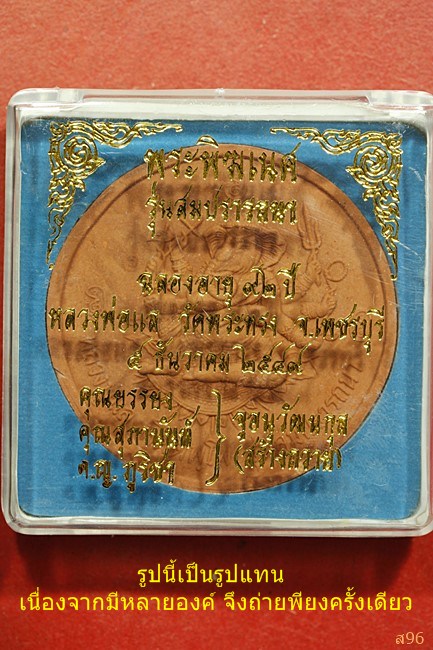 พระพิฆเนศ
รุ่นสมปรารถนา
ฉลองอายุ ๙๒ ปี
หลวงพ่อแล วัดพระทรง จ.เพชรบุรี
๕ ธันวาคม ๒๕๔๙
คุณบรรยง
คุณสุภานันท์
ด.ญ. ภูริชา
จูฑนวัฒนกุล
(สร้างถวาย)
รูปนี้เป็นรูปแทน
เนื่องจากมีหลายองค์ จึงถ่ายพียงครั้งเดียว
ส96